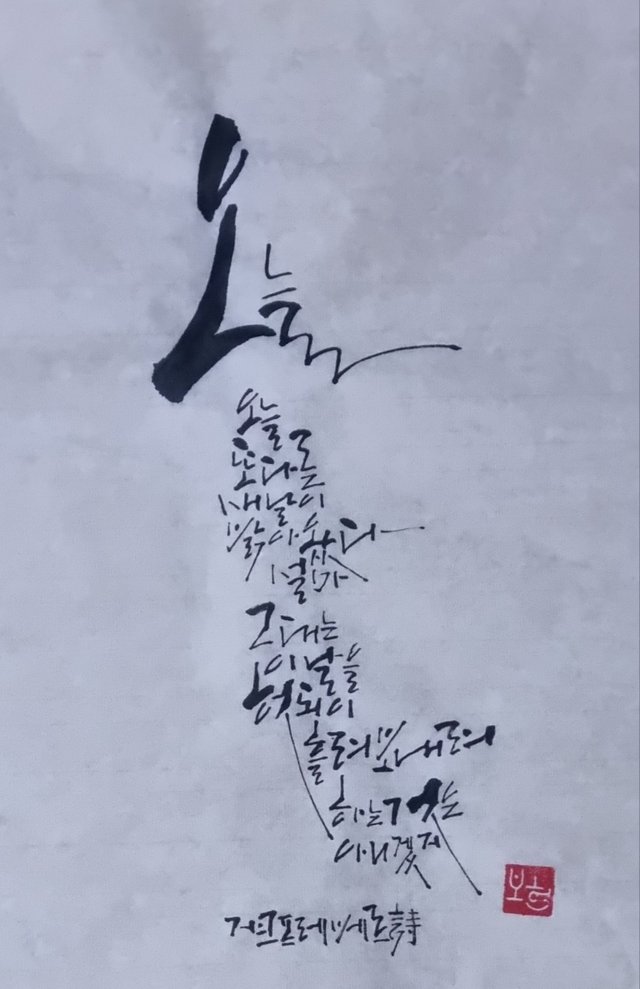 오늘
오늘
또 다른
새 날이
밝아 왔다
설마
그대는
이 날을
헛되이
흘려 보내려
하는 것은
아니겠지
프레베르 詩